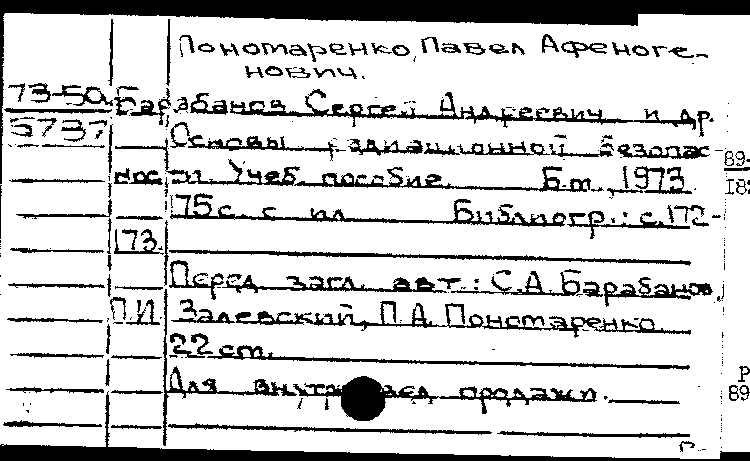 Пономаренко, Павел Афеноге-
нович.
73-50
5737
Барабанов Сергей Андреевич и др.
Основы радиационной безопас-
ности. Учеб. пособие. Б.м., 1973.
175 с. с ил. Библиогр.: с. 172-
173.
Перед загл. авт.: С.А. Барабанов,
П.И. Залевский, П.А. Пономаренко.
22 cm.
Для продажи.
89-
I8
Р
89